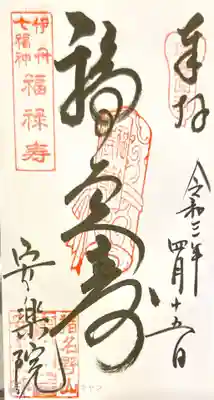 奉拝
令和三年四月十五日
福禄寿
伊丹
七福神
福禄寿
安楽院
猪名野山